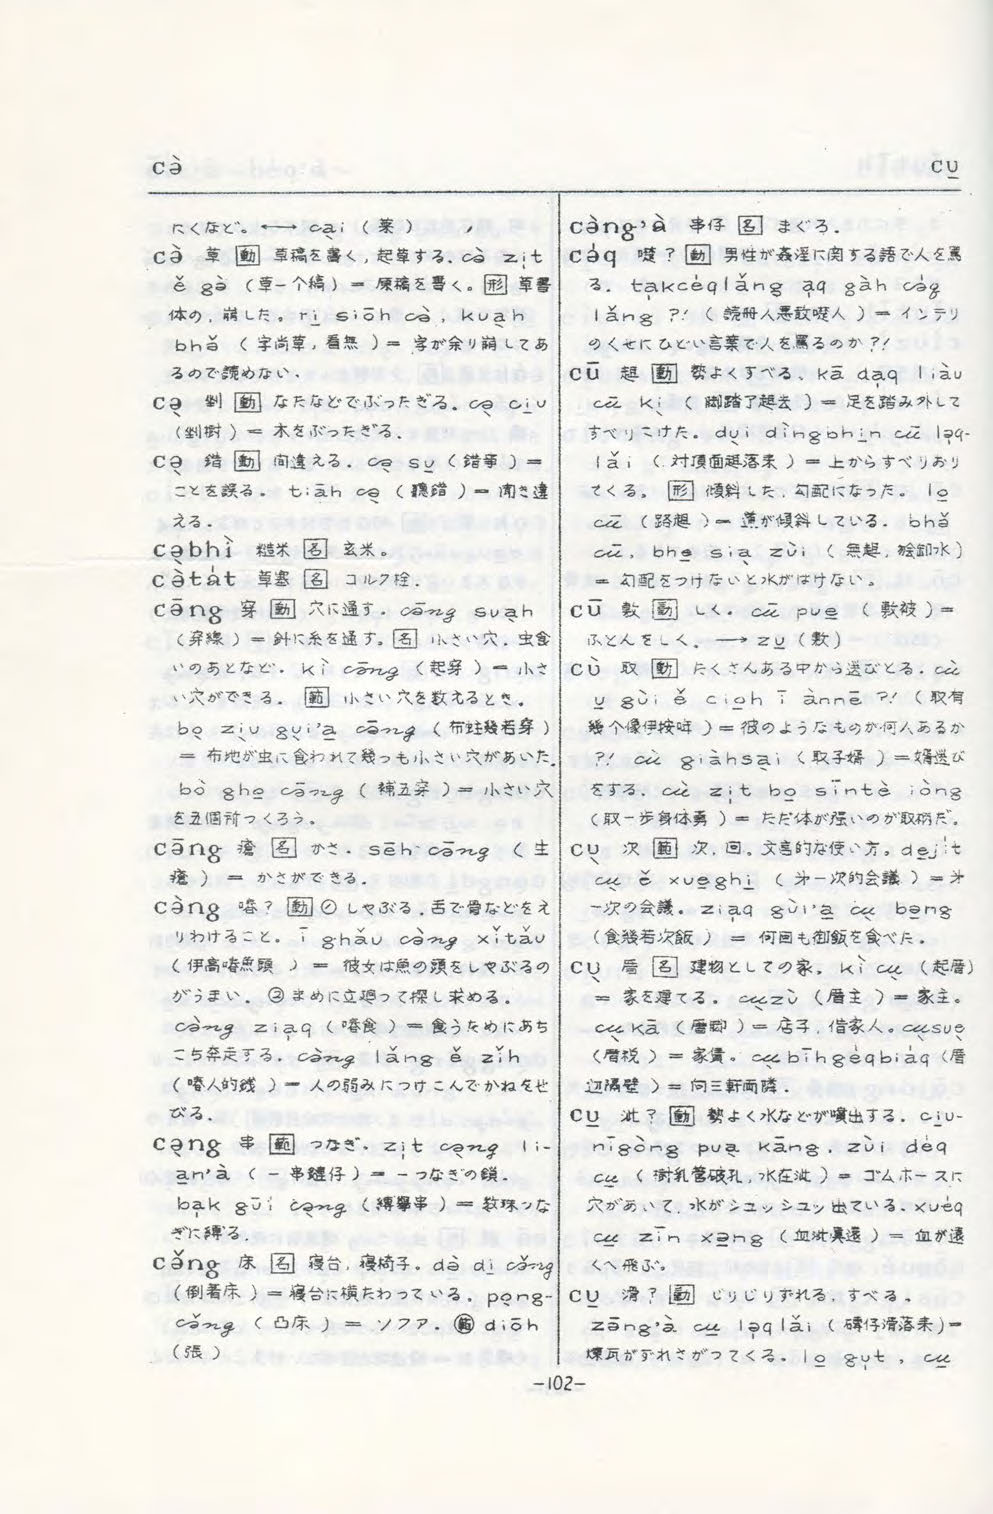 cə̀
cu̱
にくなど。←→ ca̱i (菜)
cə̀ 草 [動] 草稿を書く,起草する。cə̀ zi̍t
ě gə̀ (草一个稿) = 原稿を書く。[形] 草書
体の,崩した。ri̱ siōh cə̀, kuạh
bhə̌ (字尚草,看無) = 字が余り崩してあ
るので読めない。
cə̣ 剉 [動] なたなどでぶったぎる。cə̣ ciu
(剉樹) = 木をぶったぎる。
cə̣ 錯 [動] 間違える。cə̣ su̱ (錯事) =
ことを誤る。tiāh cə̣ (聽錯) = 聞き違
える。
cə̣bhì 糙米 [名] 玄米。
cə̀tát 草塞 [名] コルク栓。
cə̄ng 穿 [動] 穴に通す。cə̄ng suạh
(穿線) = 針に糸を通す。[名] 小さい穴,虫食
いのあとなど。kì cə̄ng (起穿) = 小さ
い穴ができる。[範] 小さい穴を数えるとき。
bọ ziụ guì'a̱ cə̄ng (布蛀幾若穿)
= 布地が虫に食われて幾っも小さい穴があいた。
bò gho̱ cə̄ng (補五穿) = 小さい穴
を五個所つくろう。
cə̄ng 瘡 [名] かさ。sēh cə̄ng (生
瘡) = かさができる。
cə̀ng 㗱? [動] ① しゃぶる,舌で骨などをえ
りわけること。ī ghǎu cə̀ng xǐtǎu
(伊高㗱魚頭) = 彼女は魚の頭をしゃぶるの
がうまい。② まめに立廻って探し求める。
cə̀ng ziaq (㗱食) = 食うためにあち
こち奔走する。cə̀ng lǎng ě zǐh
(㗱人的銭) = 人の弱みにつけこんでかねをせ
びる。
cə̣ng 串 [範] つなぎ。zi̍t cə̣ng li-
an'à (一串鏈仔) = 一つなぎの鎖。
ba̍k gūi cə̣ng (縛舉串) = 数珠つな
ぎに縛る。
cə̌ng 床 [名] 寝台,寝椅子。də̀ di̱ cə̌ng
(倒著床) = 寝台に横たわっている。pọng-
cə̌ng (凸床) = ソファ。[範] diōh
(張)
cə̀ng'à 串仔 [名] まぐろ。
cə̍q 㗱? [動] 男性が姦淫に関する語で人を罵
る。ta̍kcéqlǎng a̍q gàh cə̍q
lǎng ?! (読冊人悪敢㗱人) = インテリ
のくせにひどい言葉で人を罵るのか?!
cū 趄 [動] 勢よくすべる。kā da̍q liàu
cū kị (脚踏了趄去) = 足を踏み外して
すべりこけた。dụi dìngbhi̱n cū lə̍q-
lǎi (対頂面趄落来) = 上からすべりおり
てくる。[形] 傾斜した,勾配になった。lo̱
cū (路趄) = 道が傾斜している。bhə̌
cū, bhe̱ sia̱ zùi (無趄,𣍐卸水)
= 勾配をつけないと水がはけない。
cū 敷 [動] しく。cū pue̱ (敷被) =
ふとんをしく。→ zu̱ (敷)
cù 取 [動] たくさんある中から選びとる。cù
u̱ gùi ě cioh ī ànnē?! (取有
幾个像伊按哖) = 彼のようなものが何人あるか
?! cù giàhsại (取子婿) = 婿選び
をする。cù zi̍t bo̱ sīntè iòng
(取一步身体勇) = ただ体が強いのが取柄だ。
cụ 次 [範] 次,回。文言的な使い方。dẹji̍t
cụ ě xue̱ghi̱ (第一次的会議) = 第
一次の会議。ziaq gùi'a̱ cụ bə̱ng
(食幾若次飯) = 何回も御飯を食べた。
cụ 厝 [名] 建物としての家。kì cụ (起厝)
= 家を建てる。cụzù (厝主) = 家主。
cụkā (厝脚) = 店子,借家人。cụsuẹ
(厝税) = 家賃。cụbīhgéqbiáq (厝
辺隔壁) = 向三軒両隣。
cu̱ 泚? [動] 勢よく水などが噴出する。ciu-
nīgòng puạ kāng, zùi déq
cu̱ (樹乳管破孔,水在泚) = ゴムホースに
穴があいて,水がシユッシユッ出ている。xuéq
cu̱ zīn xə̱ng (血泚真遠) = 血が遠
くへ飛ぶ。
cu̱ 滑? [動] じりじりずれる,すべる。
zə̄ng'à cu̱ lə̍qlǎi (磚仔滑落来) =
煉瓦がずれさがってくる。lo̱ gu̍t, cu̱
-102-